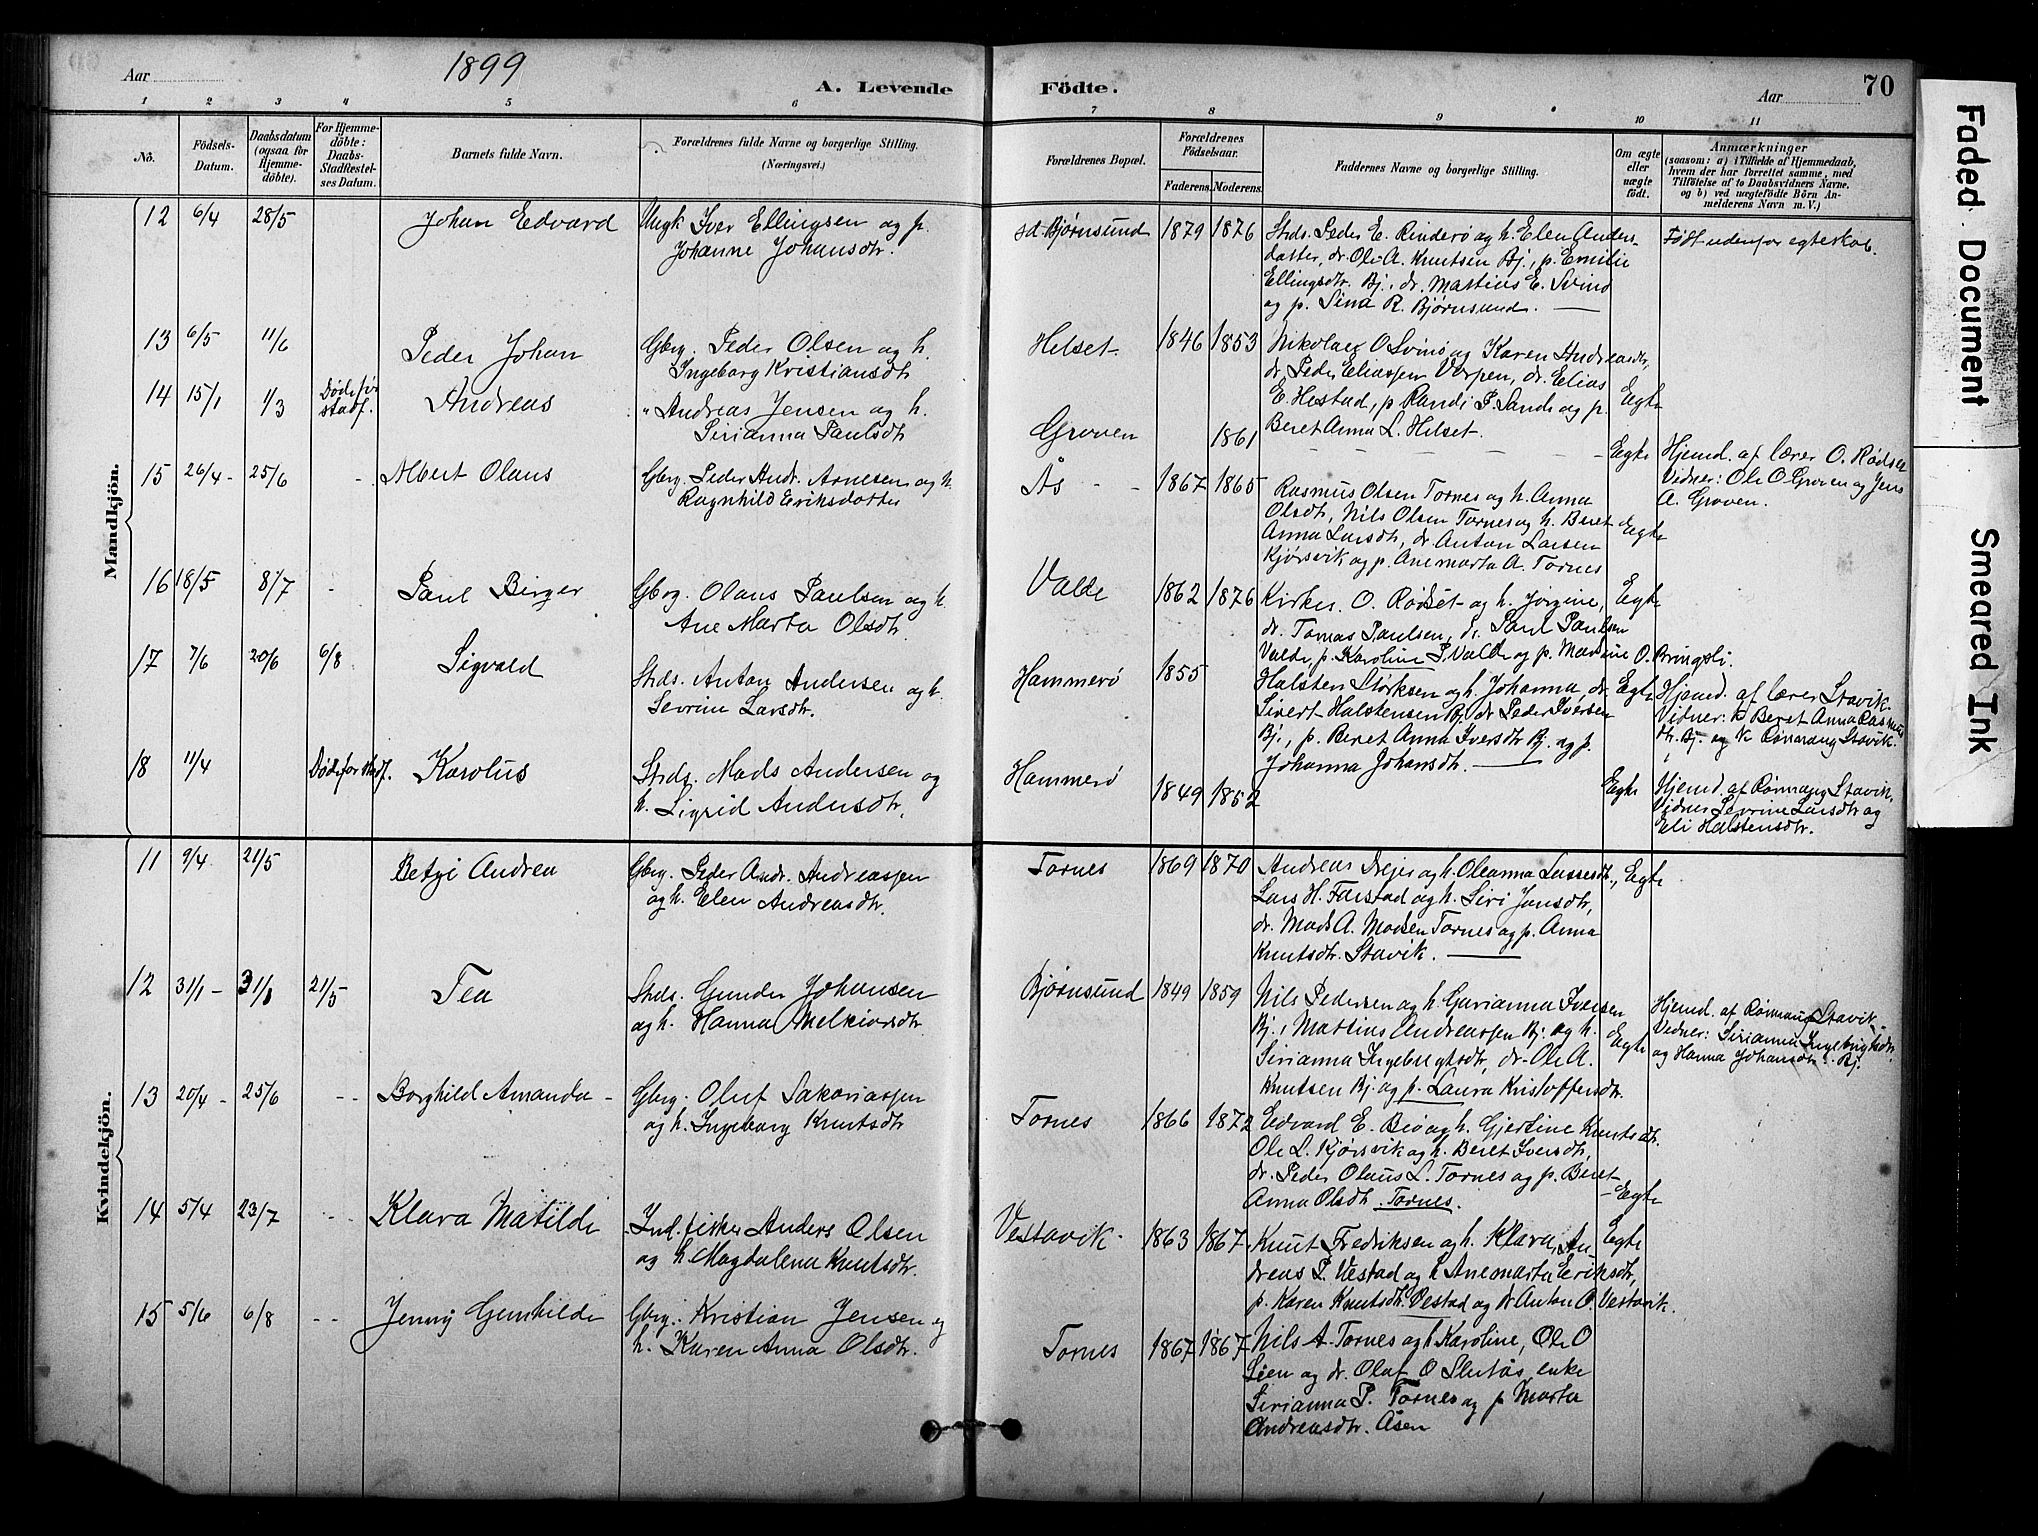 Aar 1899
A. Levende Födte.
Aar 70
1 2 3 4 5 6 7 8 9 10 11
No.
Födsels-
Datum.
Daabsdatum
(ogsaa for
Hjemme-
döbte).
For Hjemme-
döbte:
Daabs-
Stadfæstel-
ses Datum.
Barnets fulde Navn.
Forældrenes fulde Navne og borgerlige Stilling.
(Næringsvei.)
Forældrenes Bopæl.
Forældrenes
Födselsaar.
Faderens. Moderens.
Faddernes Navne og borgerlige Stilling.
Om ægte
eller
uægte
födt.
Anmærkninger
(saasom: a) i Tilfælde af Hjemmedaab,
hvem der har forrettet samme, med
Tilföielse af to Daabsvidners Navne,
og b) ved uægtefödte Börn An-
melderens Navn m. V.)
Mandkjön.
12 6/4 28/5 Johan Edvard
Ungk Iver Ellingsen og p.
Johanne Johansdtr.
sd. Bjørnsund 1879 1876
Strds. Peder E. Rinderø og h. Elen Anders-
datter, dr. Ole A. Knutsen Bj., p. Emilie
Ellingsdtr. Bj., dr. Martius E. Svinø
og p. Sina R. Bjørnsund.
Født udenfor egteskab.
13 6/5 11/6 Peder Johan
Gbrg. Peder Olsen og h.
Ingeborg Kristiansdtr
Helset 1846 1853
Nikolai O Svinø og Karen Andreasdtr,
dr. Peder Eliassen Varpen, dr. Elias
E. Hestad, p Randi P. Sande og p.
Beret Anna L. Helset.
Egte
14 15/1 1/3 Døde før
stadf. Andreas
" Andreas Jensen og h.
Sirianna Paulsdtr
Groven 1861
Egte
Hjemd. af lærer O. Rødset
Vidner: Ole O Groven og Jens
A. Groven.
15 26/4 - 25/6 - Albert Olaus
Gbrg. Peder Andr. Arnesen og h.
Ragnhild Eriksdatter
Ås - - 1867 1865
Rasmus Olsen Tornes og h. Anna
Olsdtr, Nils Olsen Tornes og h. Beret
Anna Larsdtr, dr. Anton Larsen
Kjørsvik og p. Anemarta A. Tornes
Egte
16 18/5 8/7 - Paul Birger
Gbrg. Olaus Paulsen og h.
Ane Marta Olsdtr.
Valde 1862 1876
Kirkes. O. Rødset og h. Jørgine,
dr. Tomas Paulsen, dr. Paul Paulsen
Valde, p. Karoline P. Valde og p. Marine O. Bringsli.
Egte
17 7/6 20/6 6/8 Sigvald
Strds. Anton Andersen og h.
Sevrine Larsdtr.
Hammerø 1855
Halsten Størksen og h. Johanna, dr.
Sivert Halstensen Bj. dr Peder Iversen
Bj., p. Beret Anna Iversdtr Bj. og p.
Johanna Johansdtr.
Egte
Hjemd. af lærer Stavik.
Vidner: k Beret Anna Rasmus
dtr. Bj. og k Rønnaug Stavik.
18 11/4 Døde før stadf. Karolus
Strds. Mads Andersen og
h. Sigrid Andersdtr.
Hammerø 1849 1852
Egte
Hjemd. af Rønnaug Stavik.
Vidner Sevrine Larsdtr og
Eli Halstensdtr.
Kvindekjön.
11 9/4 21/5 Betzi Andrea
Gbrg. Peder Andr. Andreassen
og h. Elen Andreasdtr.
Tornes 1869 1870
Andreas Drejer og h. Oleanna Lassesdtr.,
Lars H. Farstad og h. Siri Jonsdtr,
dr. Mads A. Madsen Tornes og p. Anna
Knutsdtr. Stavik.
Egte
12 31/1 - 31/1 21/5 Tea
Strds. Gunder Johansen
og h. Hanna Melkiorsdtr.
Bjørnsund 1849 1859
Nils Pedersen og h. Gurianna Iversen
Bj., Martins Andreassen Bj. og h.
Sirianna Ingebrigtsdtr, dr. Ole A.
Knutsen Bj. og p. Laura Kristoffersdtr.
Egte
Hjemd. af Rønnaug Stavik
Vidner: Sirianna Ingebrigtsdtr.
og Hanna Johansdtr. Bj.
13 20/4 - 25/6 - - Borghild Amanda -
Gbrg. Oluf Sakariassen
og h. Ingeborg Knutsdtr
Tornes 1866 1872
Edvard E. Bjø og h. Gjertine Knutsdtr.
Ole L. Kjørsvik og h. Beret Iversdtr,
dr. Peder Olaus L. Tornes og p. Beret
Anna Olsdtr. Tornes.
Egte
14 5/4 23/7 - - Klara Matilde
Ind. fisker Anders Olsen
og h Magdalena Knutsdtr.
Vestavik 1863 1867
Knut Fredriksen og h. Klara, An-
dreas P. Vestad og h Anemarta Eriksdtr,
p. Karen Knutsdtr. Vestad og dr Anton O. Vestavik.
Egte
15 5/6 6/8 - - Jenny Gunhilde
Gbrg. Kristian Jensen og
h. Karen Anna Olsdtr.
Tornes 1867 1867
Nils A. Tornes og h Karoline, Ole O
Lien og dr. Oluf O enke
Sirianna P. Tornes og p Marta
Andreasdtr. Åsen
Faded Document
Smeared Ink